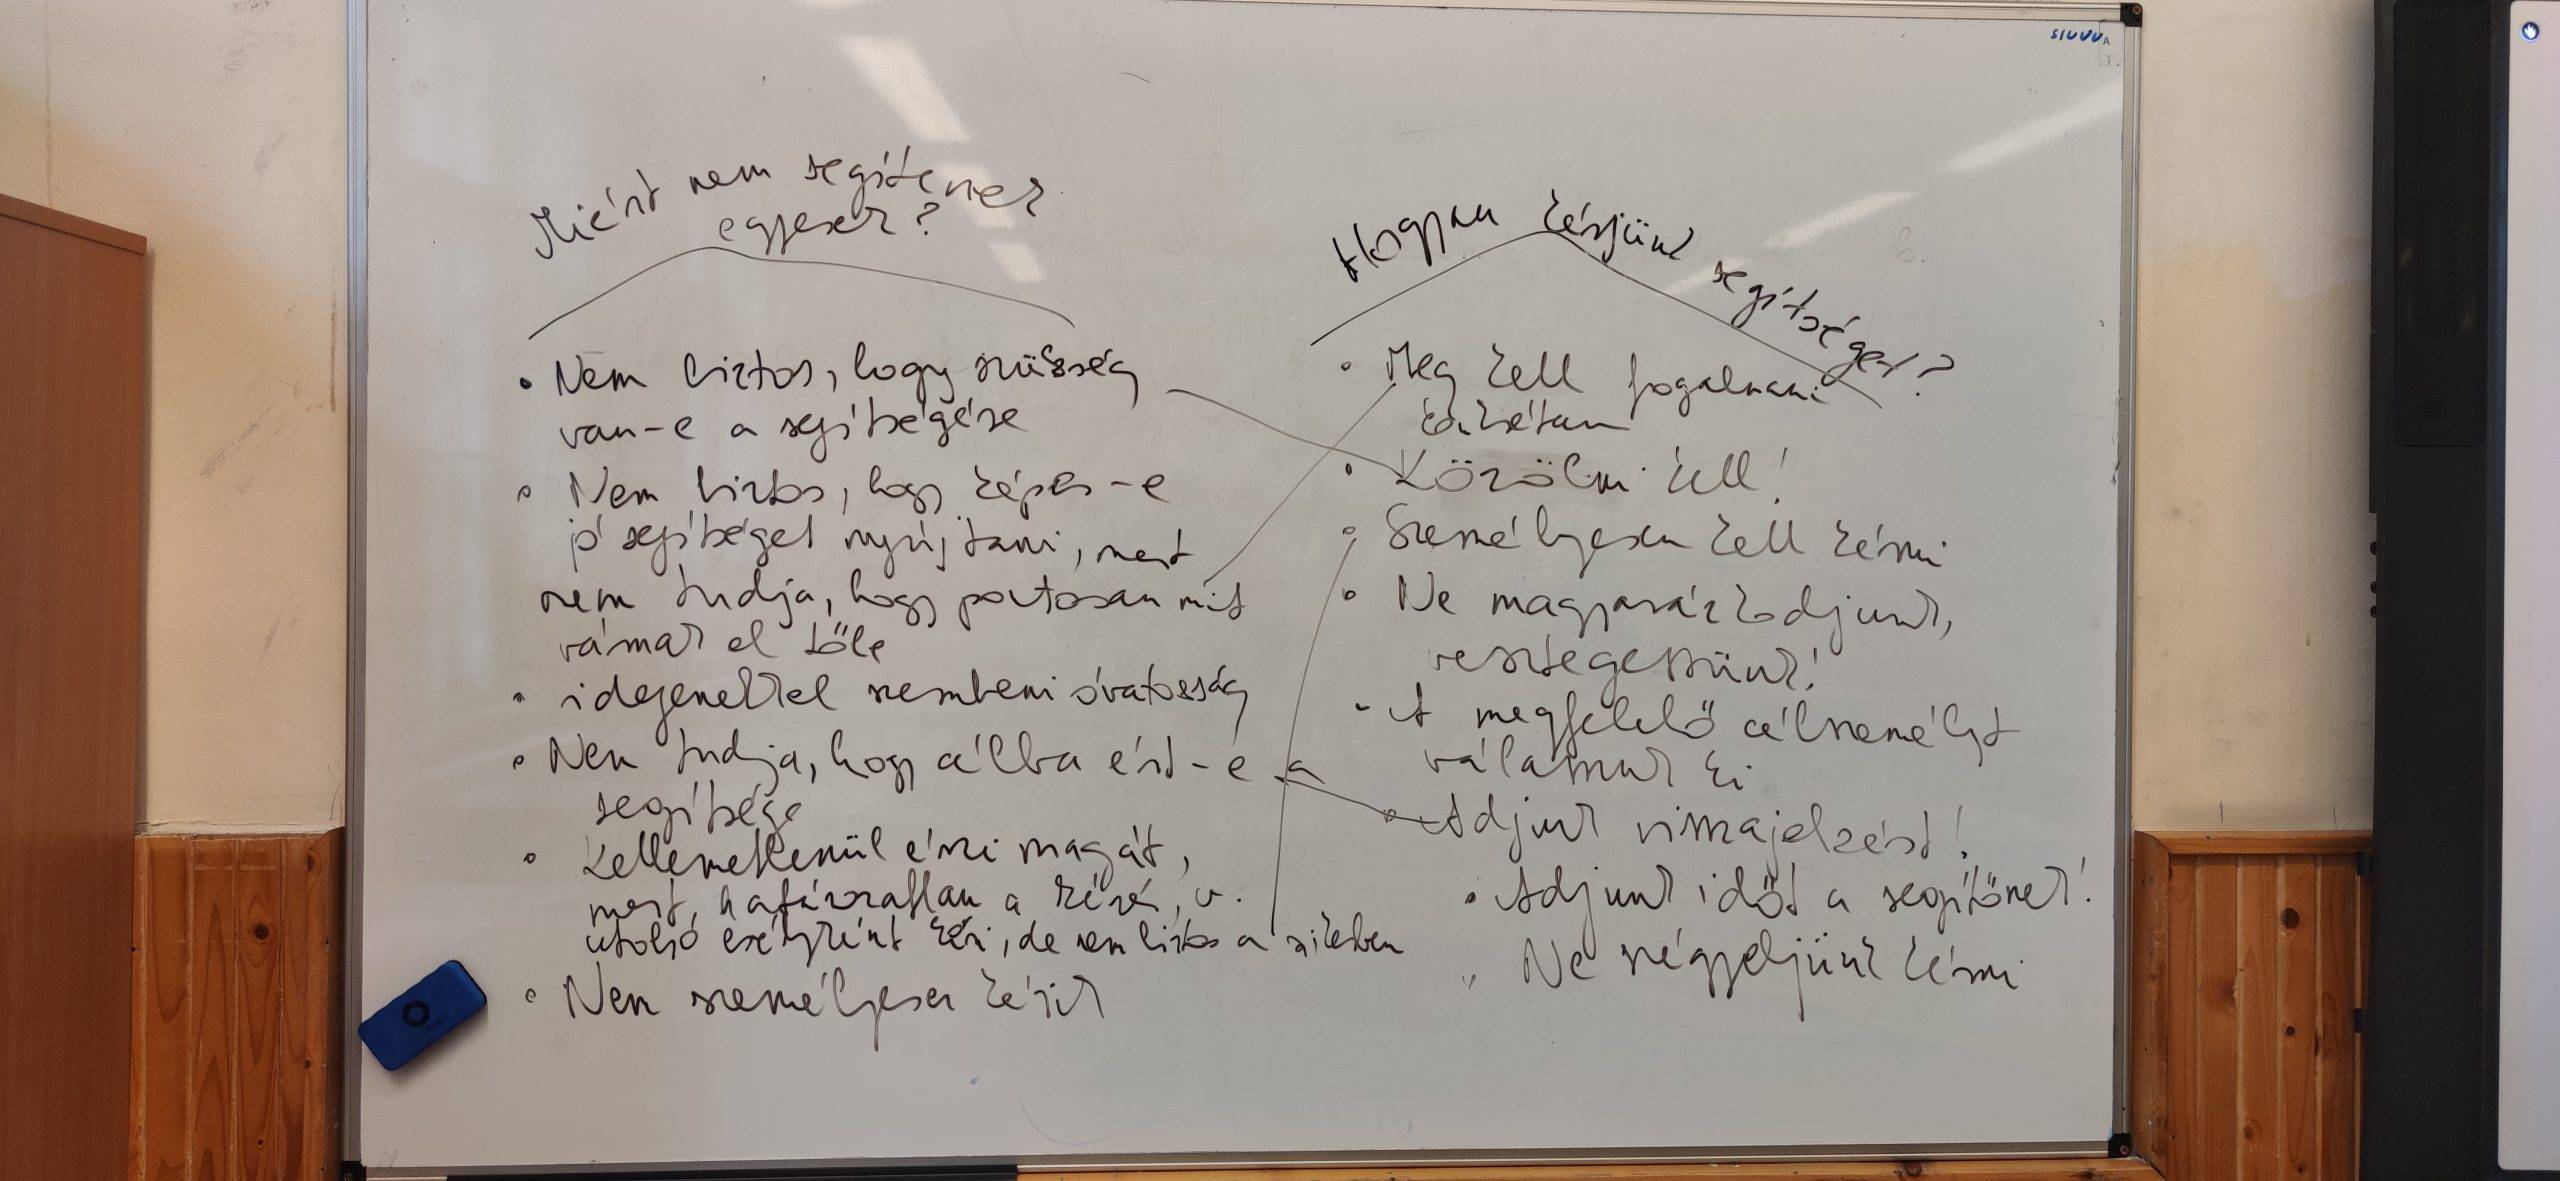 Miért nem segítenek
egyesek?
• Nem biztos, hogy szükség
van-e a segítségére
• Nem biztos, hogy képes-e
jó segítséget nyújtani, mert
nem tudja, hogy pontosan mit
várnak el tőle
• idegenekkel szembeni óvatosság
• Nem tudja, hogy célba ért-e a
segítsége
• Kellemetlenül érzi magát,
mert határozatlan a kérés, v.
utolsó esélyként kéri, de nem biztos a sikerben
• Nem személyesen kérik
Hogyan kérjünk segítséget?
• Meg kell fogalmazni
konkrétan
• Közölni kell!
• Személyesen kell kérni
• Ne magyarázkodjunk,
vesztegessünk!
• A megfelelő célszemélyt
válasszuk ki
• Adjunk visszajelzést!
• Adjunk időt a segítőnek!
• Ne szégyeljünk kérni